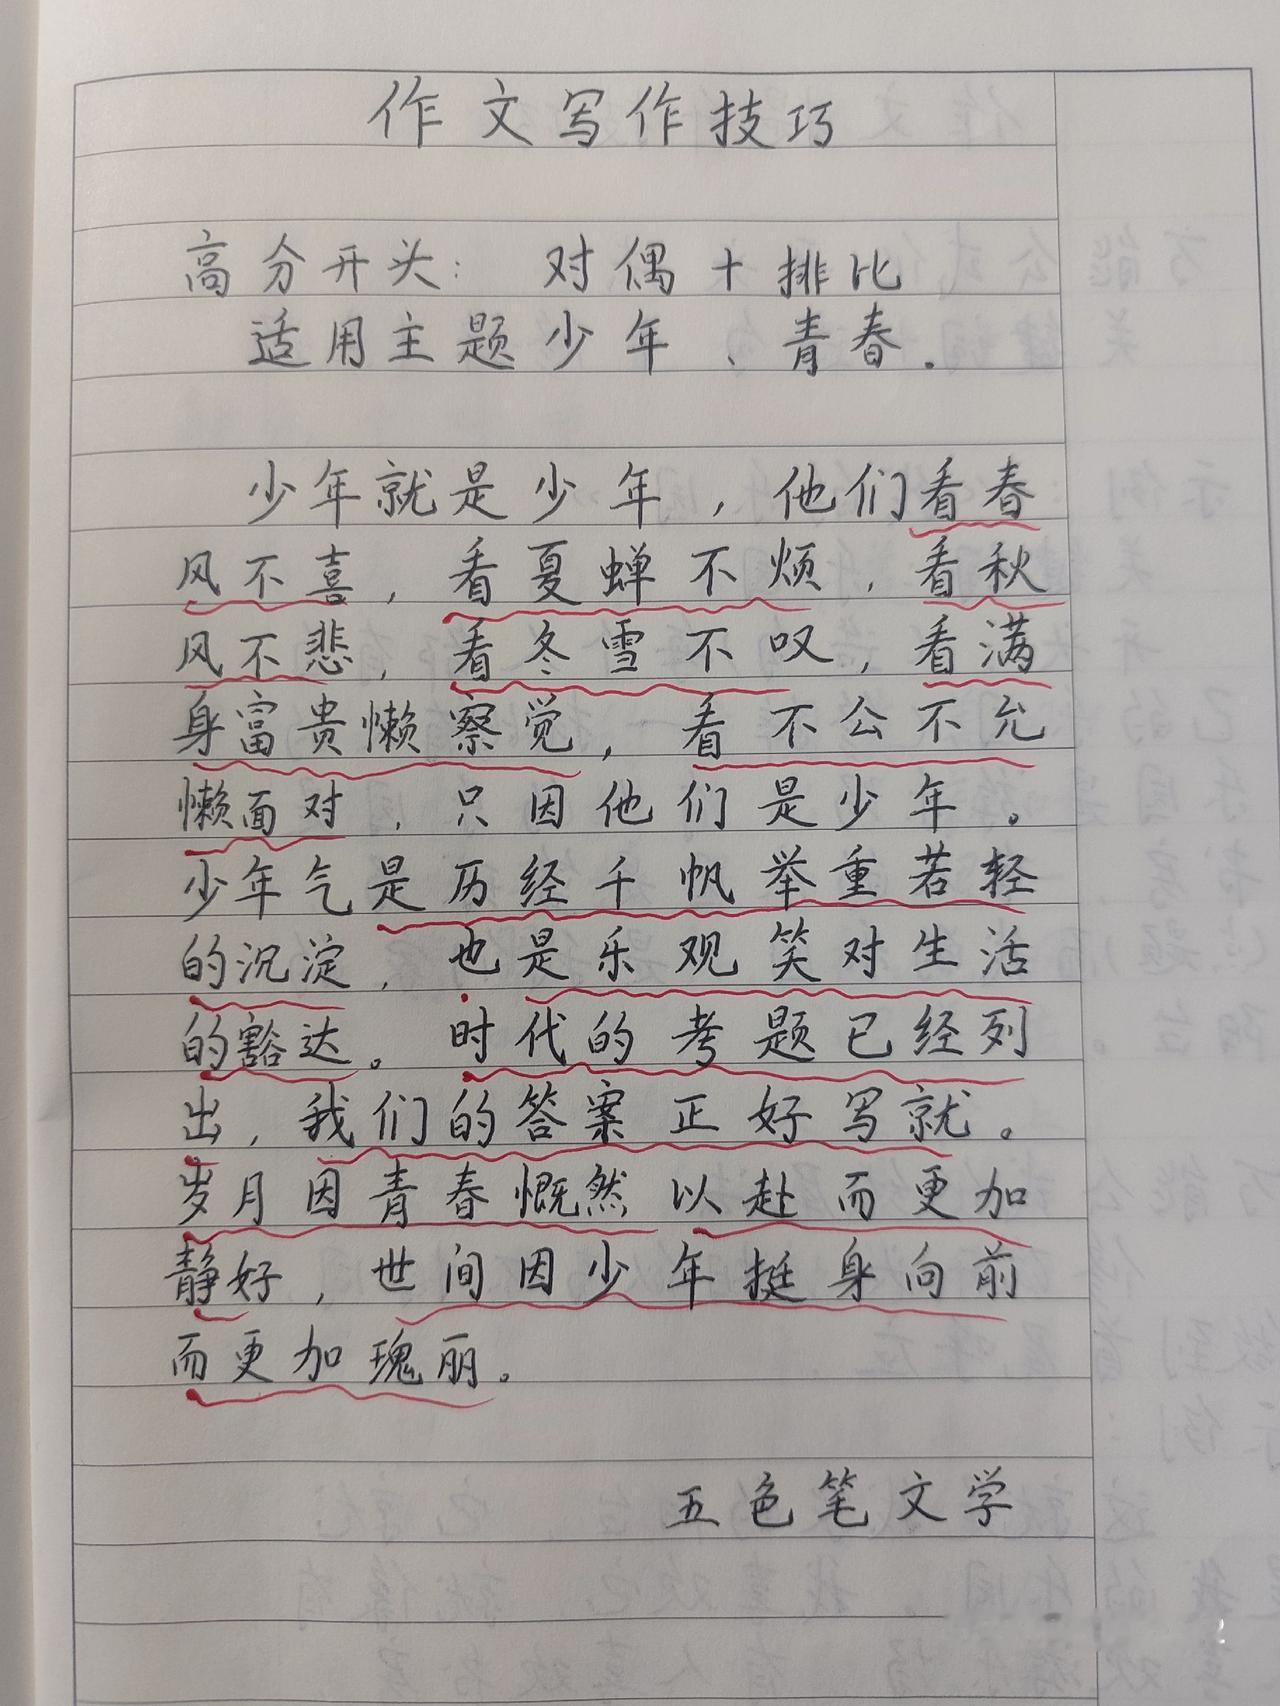 作文写作技巧
高分开头：对偶+排比
适用主题少年、青春.
少年就是少年，他们看春
风不喜，看夏蝉不烦，看秋
风不悲，看冬雪不叹，看满
身富贵懒察觉，看不公不允
懒面对，只因他们是少年。
少年气是历经千帆举重若轻
的沉淀，也是乐观笑对生活
的豁达。时代的考题已经列
出，我们的答案正好写就。
岁月因青春慨然以赴而更加
静好，世间因少年挺身向前
而更加瑰丽。
五色笔文学